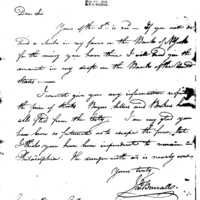 Dear Sir
Yours of the 3d is rec'd — If you will
send a check in my favor on the Bank of
for the money you have there I will send you the
amount in my draft on the Bank of the United
States —
I cannot give you any information respecting
the price of Stocks Buyers Sellers and Brokers have
all fled from the City. I am very glad
you have been so fortunate as to escape the fever, but
I think you have been imprudent to remain in
Philadelphia. The danger with us is nearly over.
Yours truly